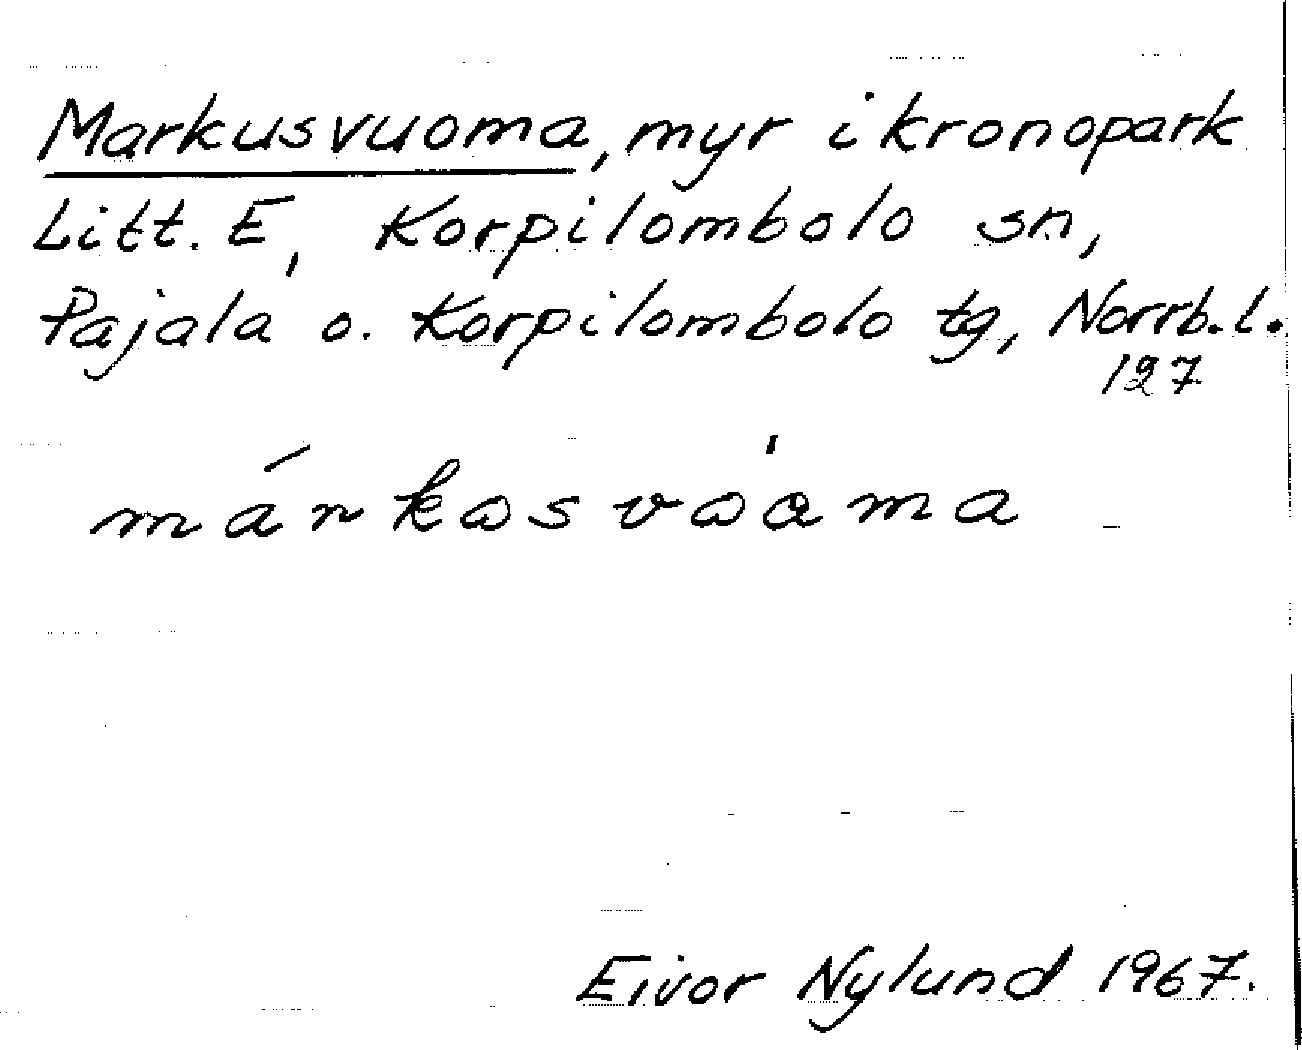 Markusvuoma, myr i kronopark
Litt. E, Korpilombolo sn,
Pajala o. Korpilombolo tg, Norrb. l.
127
márkωsvωàma
Eivor Nylund 1967.